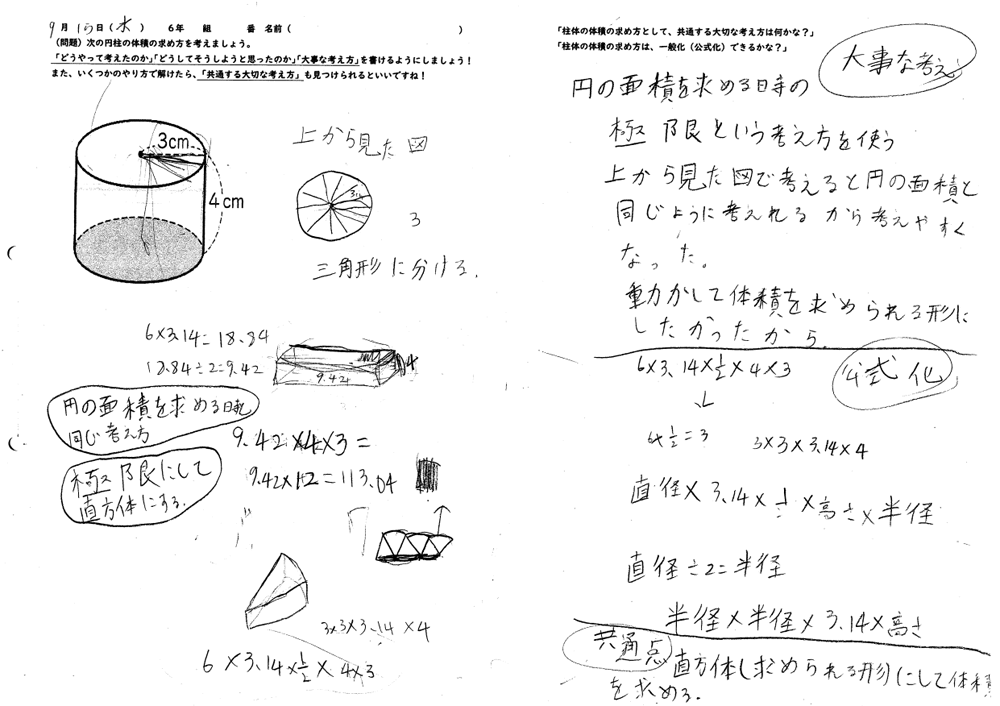 9月15日(水) 6年 組 番 名前( )
(問題)次の円柱の体積の求め方を考えましょう。
「どうやって考えたのか」「どうしてそうしようと思ったのか」「大事な考え方」を書けるようにしましょう!
また、いくつかのやり方で解けたら、「共通する大切な考え方」も見つけられるといいですね!
3cm
4cm
上から見た図
3cm
3
三角形に分ける.
6×3.14=18.84
18.84÷2=9.42
9.42
4
円の面積を求める時と
同じ考え方
9.42×4×3=
9.42×12=113.04
極限にして
直方体にする.
3×3×3.14×4
6×3.14×1/2×4×3
「柱体の体積の求め方として、共通する大切な考え方は何かな?」
「柱体の体積の求め方は、一般化(公式化)できるかな?」
大事な考え
円の面積を求める時の
極限という考え方を使う
上から見た図で考えると円の面積と
同じように考えれるから考えやすく
なった。
動かして体積を求められる形に
したかったから.
6×3.14×1/2×4×3
公式化
6×1/2=3 3×3×3.14×4
直径×3.14×1/2×高さ×半径
直径÷2=半径
半径×半径×3.14×高さ
共通点
直方体し求められる形にして体積
を求める.